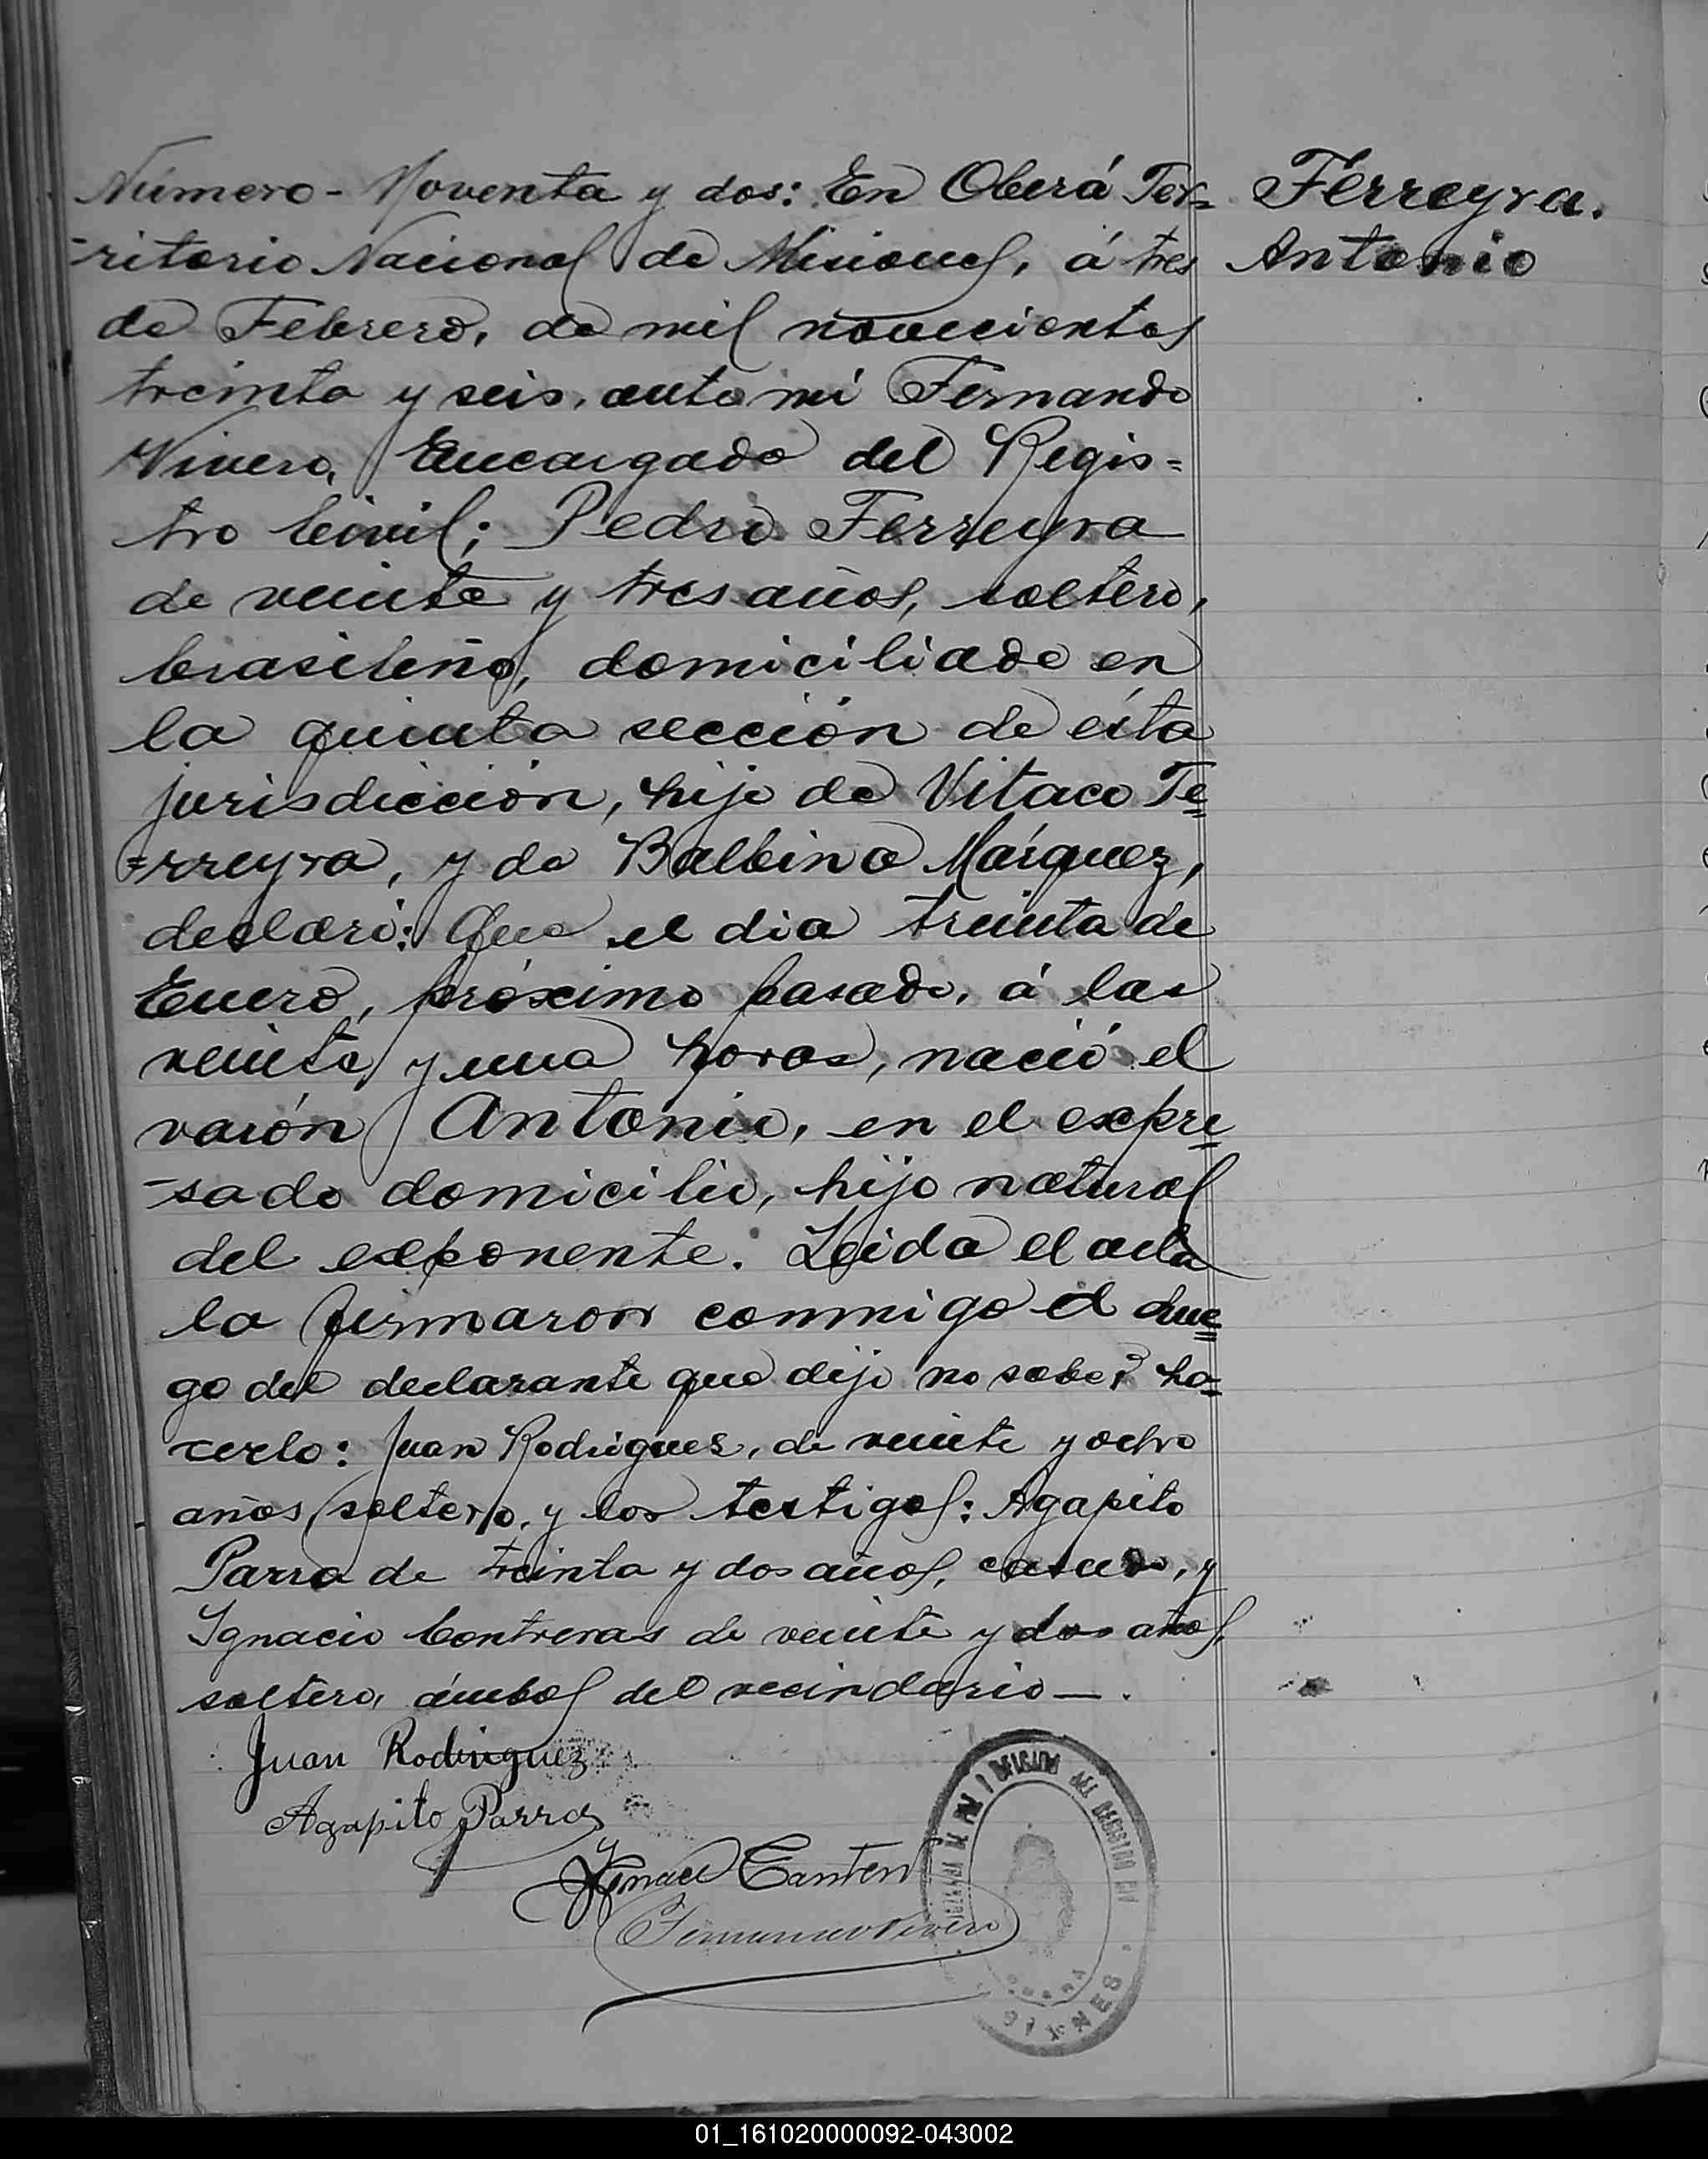 Número - Noventa y dos: En Oberá Ter=
-ritorio Nacional de Misiones, á tres
de Febrero, de mil novecientos
treinta y seis, ante mí Fernando
Vivero, Encargado del Regis=
tro Civil; Pedro Ferreyra
de veinte y tres años, soltero,
brasileño, domiciliado en
la quinta sección de ésta
jurisdicción, hijo de Vitaco Fe=
=rreyra, y de Balbina Márquez,
declaró: Que el dia treinta de
Enero, próximo pasado, á las
veinte y una horas, nació el
varón Antonio, en el expre=
-sado domicilio, hijo natural
del exponente. Leida el acta
la firmaron conmigo á rue=
go del declarante que dijo no saber ha=
cerlo: Juan Rodrigues, de veinte y ocho
años, soltero, y los testigos: Agapito
Parra de treinta y dos años, casado, y
Ignacio Contreras de veinte y dos años,
soltero, ámbos del vecindario —.
Ferreyra.
Antonio
Juan Rodriguez
Agapito Parra
Fernando Vivero
OFICINA DEL REGISTRO CIV
01_161020000092-043002